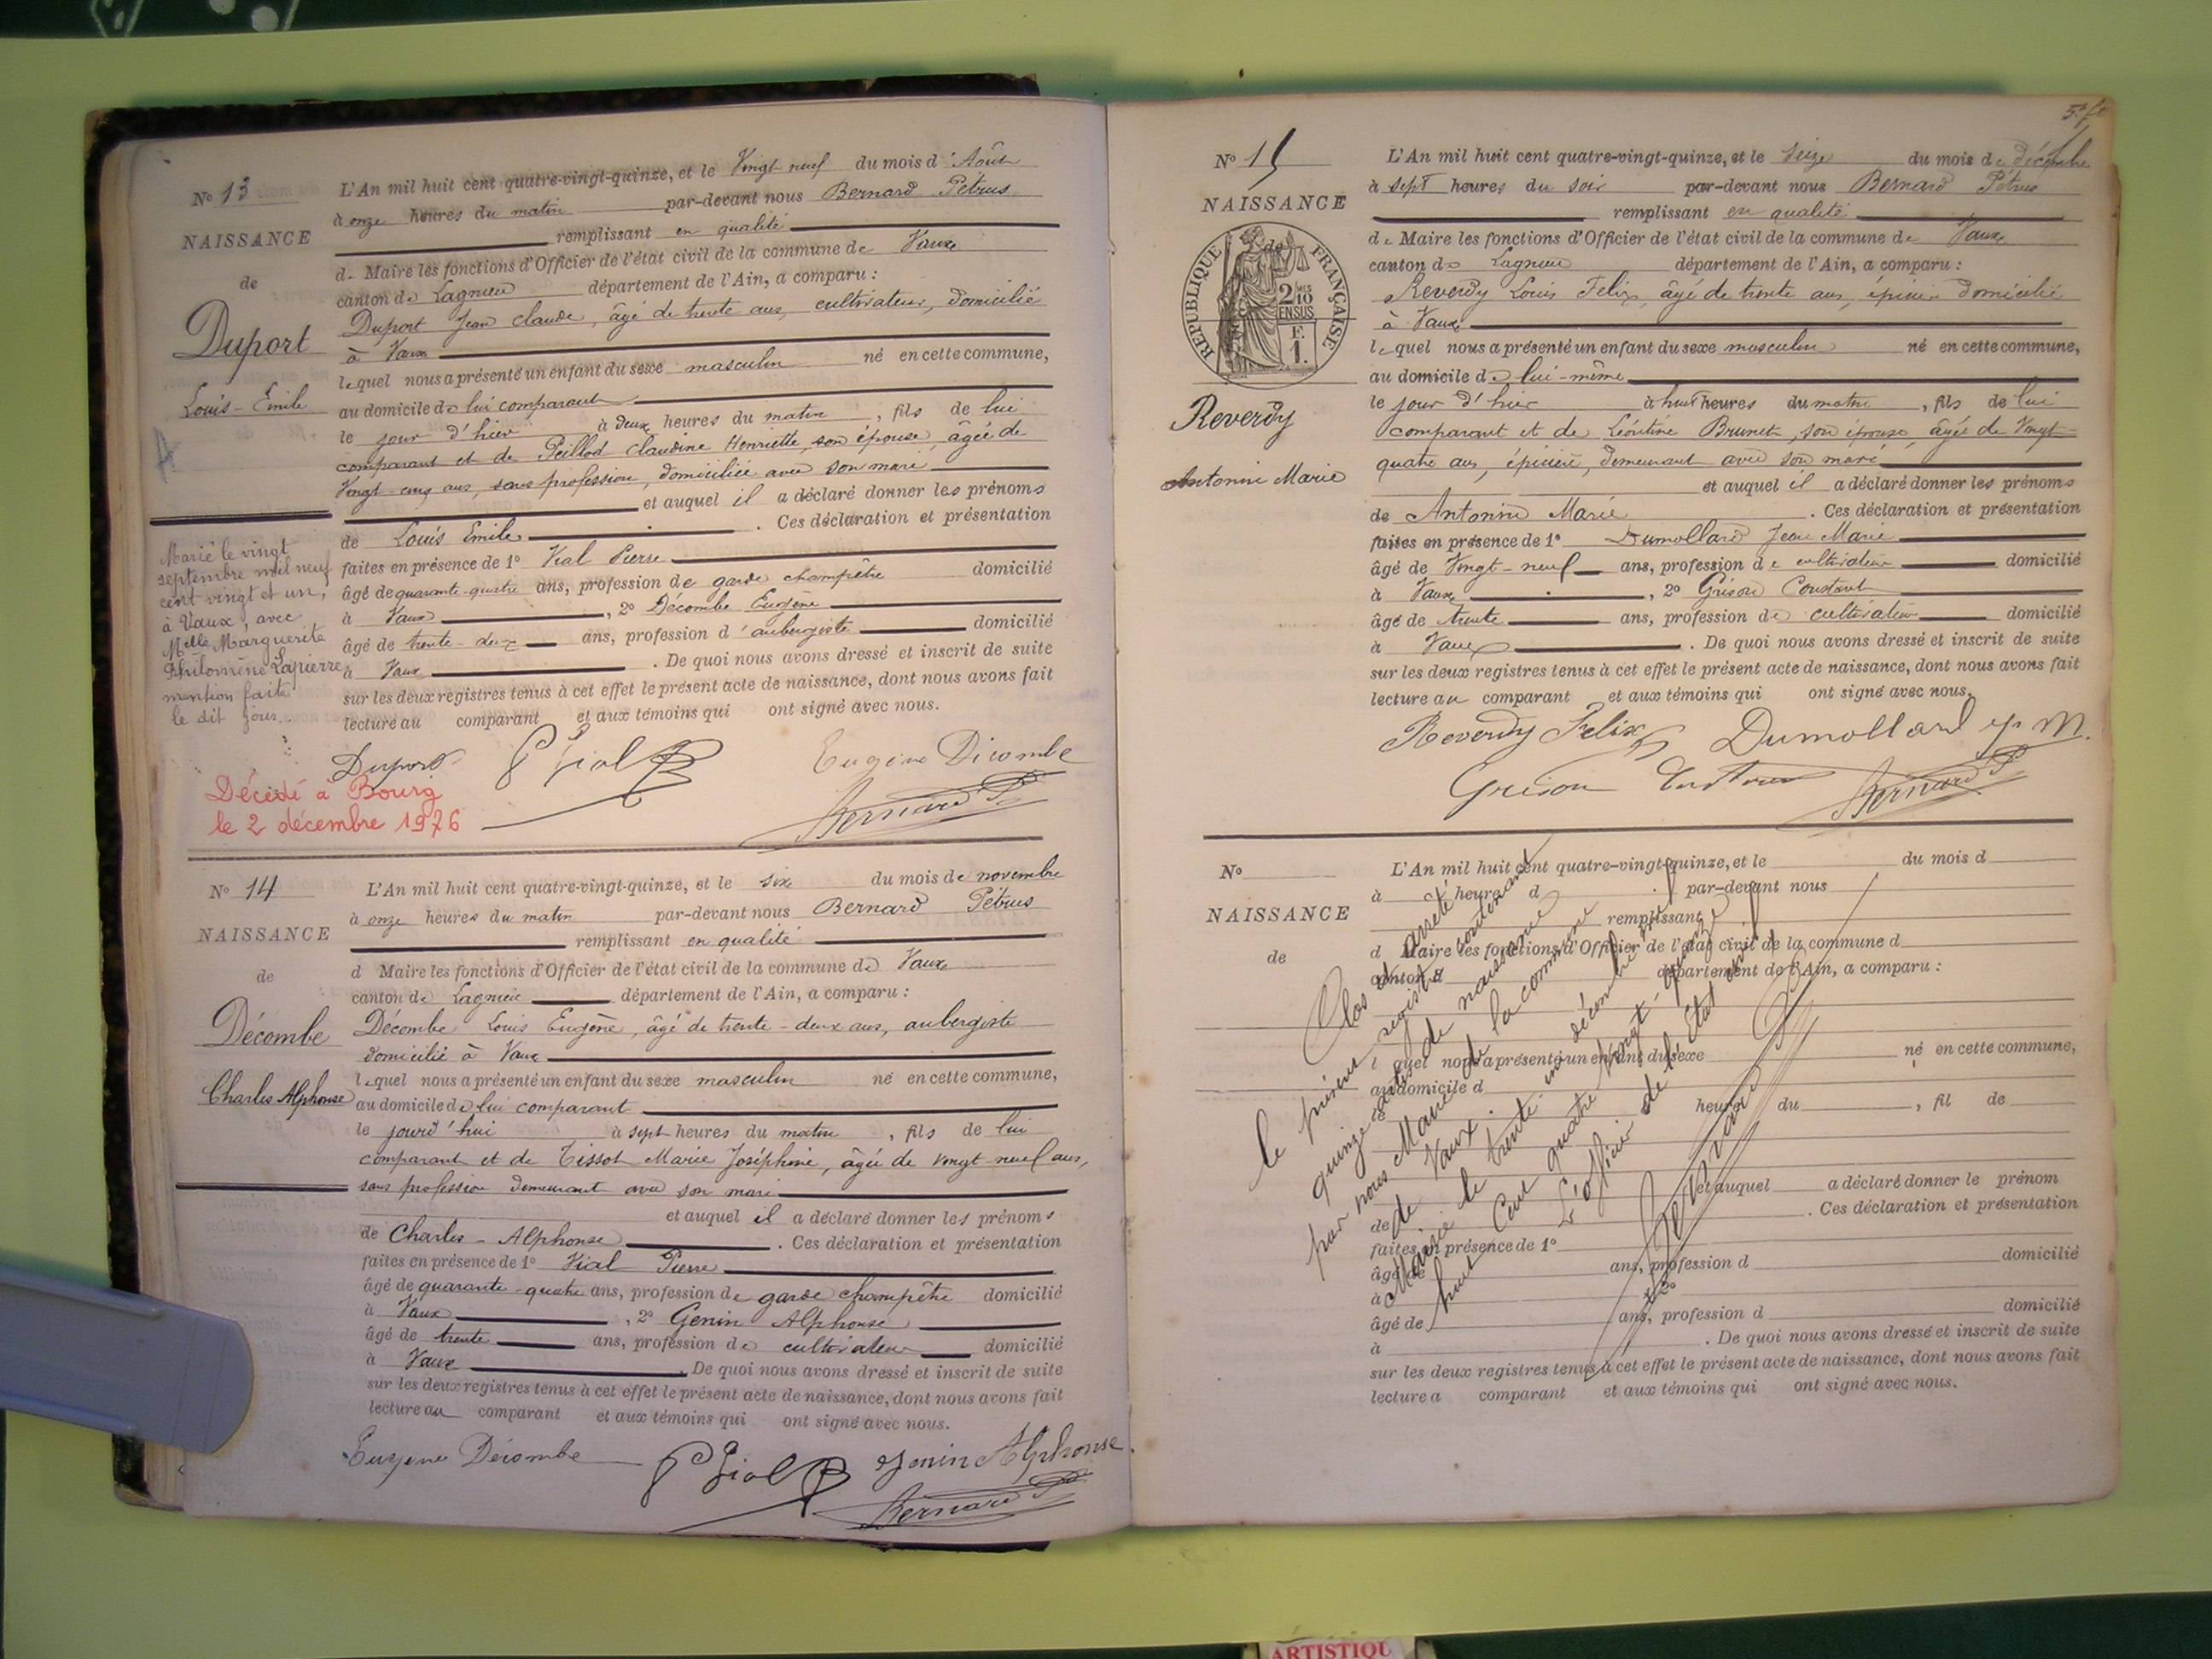 N° 13
NAISSANCE
de
Duport
Louis-Emile
Marié le vingt
septembre mil neuf
cent vingt et un,
à Vaux, avec
Melle Marguerite
Philomène Lapierre
mention faite
le dit jour.
L'An mil huit cent quatre-vingt-quinze, et le Vingt neuf du mois d'Août
à onze heures du matin par-devant nous Bernard Pétrus
remplissant en qualité
de Maire les fonctions d'Officier de l'état civil de la commune de Vaux
canton de Lagnieu département de l'Ain, a comparu :
Duport Jean Claude, âgé de trente ans, cultivateur, domicilié
à Vaux
lequel nous a présenté un enfant du sexe masculin né en cette commune,
au domicile de lui comparant
le jour d'hier à deux heures du matin, fils de lui
comparant et de Peillod Claudine Henriette, son épouse, âgée de
Vingt-cinq ans, sans profession, domiciliée avec son mari
et auquel il a déclaré donner les prénoms
de Louis Emile. Ces déclaration et présentation
faites en présence de 1° Vial Pierre
âgé de quarante-quatre ans, profession de garde champêtre domicilié
à Vaux, 2° Décombe Eugène
âgé de trente-deux ans, profession d'aubergiste domicilié
à Vaux. De quoi nous avons dressé et inscrit de suite
sur les deux registres tenus à cet effet le présent acte de naissance, dont nous avons fait
lecture au comparant et aux témoins qui ont signé avec nous.
Duport P Vial Eugène Décombe
Bernard P
Décédé à Bourg
le 2 décembre 1976
N° 14
NAISSANCE
de
Décombe
Charles Alphonse
L'An mil huit cent quatre-vingt-quinze, et le six du mois de novembre
à onze heures du matin par-devant nous Bernard Pétrus
remplissant en qualité
d Maire les fonctions d'Officier de l'état civil de la commune de Vaux
canton de Lagnieu département de l'Ain, a comparu :
Décombe Louis Eugène, âgé de trente-deux ans, aubergiste
domicilié à Vaux
lequel nous a présenté un enfant du sexe masculin né en cette commune,
au domicile de lui comparant
le jourd'hui à sept heures du matin, fils de lui
comparant et de Tissot Marie Joséphine, âgée de vingt-neuf ans,
sans profession demeurant avec son mari
et auquel il a déclaré donner les prénoms
de Charles-Alphonse. Ces déclaration et présentation
faites en présence de 1° Vial Pierre
âgé de quarante-quatre ans, profession de garde champêtre domicilié
à Vaux, 2° Genin Alphonse
âgé de trente ans, profession de cultivateur domicilié
à Vaux. De quoi nous avons dressé et inscrit de suite
sur les deux registres tenus à cet effet le présent acte de naissance, dont nous avons fait
lecture au comparant et aux témoins qui ont signé avec nous.
Eugène Décombe P Vial Genin Alphonse
Bernard P
N° 15
NAISSANCE
de
RÉPUBLIQUE FRANÇAISE
2/10
EN SUS
1 F.
Reverdy
Antonin Marie
L'An mil huit cent quatre-vingt-quinze, et le Seize du mois de décembre
à sept heures du soir par-devant nous Bernard Pétrus
remplissant en qualité
de Maire les fonctions d'Officier de l'état civil de la commune de Vaux
canton de Lagnieu département de l'Ain, a comparu :
Reverdy Louis Felix, âgé de trente ans, épicier domicilié
à Vaux
lequel nous a présenté un enfant du sexe masculin né en cette commune,
au domicile de lui-même
le jour d'hier à huit heures du matin, fils de lui
comparant et de Léontine Brunet, son épouse, âgée de Vingt-
quatre ans, épicière, demeurant avec son mari
et auquel il a déclaré donner les prénoms
de Antonin Marie. Ces déclaration et présentation
faites en présence de 1° Dumollard Jean Marie
âgé de Vingt-neuf ans, profession de cultivateur domicilié
à Vaux, 2° Grison Constant
âgé de trente ans, profession de cultivateur domicilié
à Vaux. De quoi nous avons dressé et inscrit de suite
sur les deux registres tenus à cet effet le présent acte de naissance, dont nous avons fait
lecture au comparant et aux témoins qui ont signé avec nous.
Reverdy Felix Dumollard J. M.
Grison Constant Bernard P
N°
NAISSANCE
de
L'An mil huit cent quatre-vingt-quinze, et le du mois d
à heures d par-devant nous
remplissant
d Maire les fonctions d'Officier de l'état civil de la commune d
canton d département de l'Ain, a comparu :
l quel nous a présenté un enfant du sexe né en cette commune,
au domicile d
le heures du, fil de
et auquel a déclaré donner le prénom
de. Ces déclaration et présentation
faites en présence de 1°
âgé de ans, profession d domicilié
à, 2°
âgé de ans, profession d domicilié
à. De quoi nous avons dressé et inscrit de suite
sur les deux registres tenus à cet effet le présent acte de naissance, dont nous avons fait
lecture a comparant et aux témoins qui ont signé avec nous.
Clos et arrêté
le présent registre contenant
quinze actes de naissance
par nous Maire de la commune
de Vaux.
Mairie le trente un décembre mil
huit Cent quatre Vingt-quinze
L'officier de l'Etat civil
Bernard P
ARTISTIQU